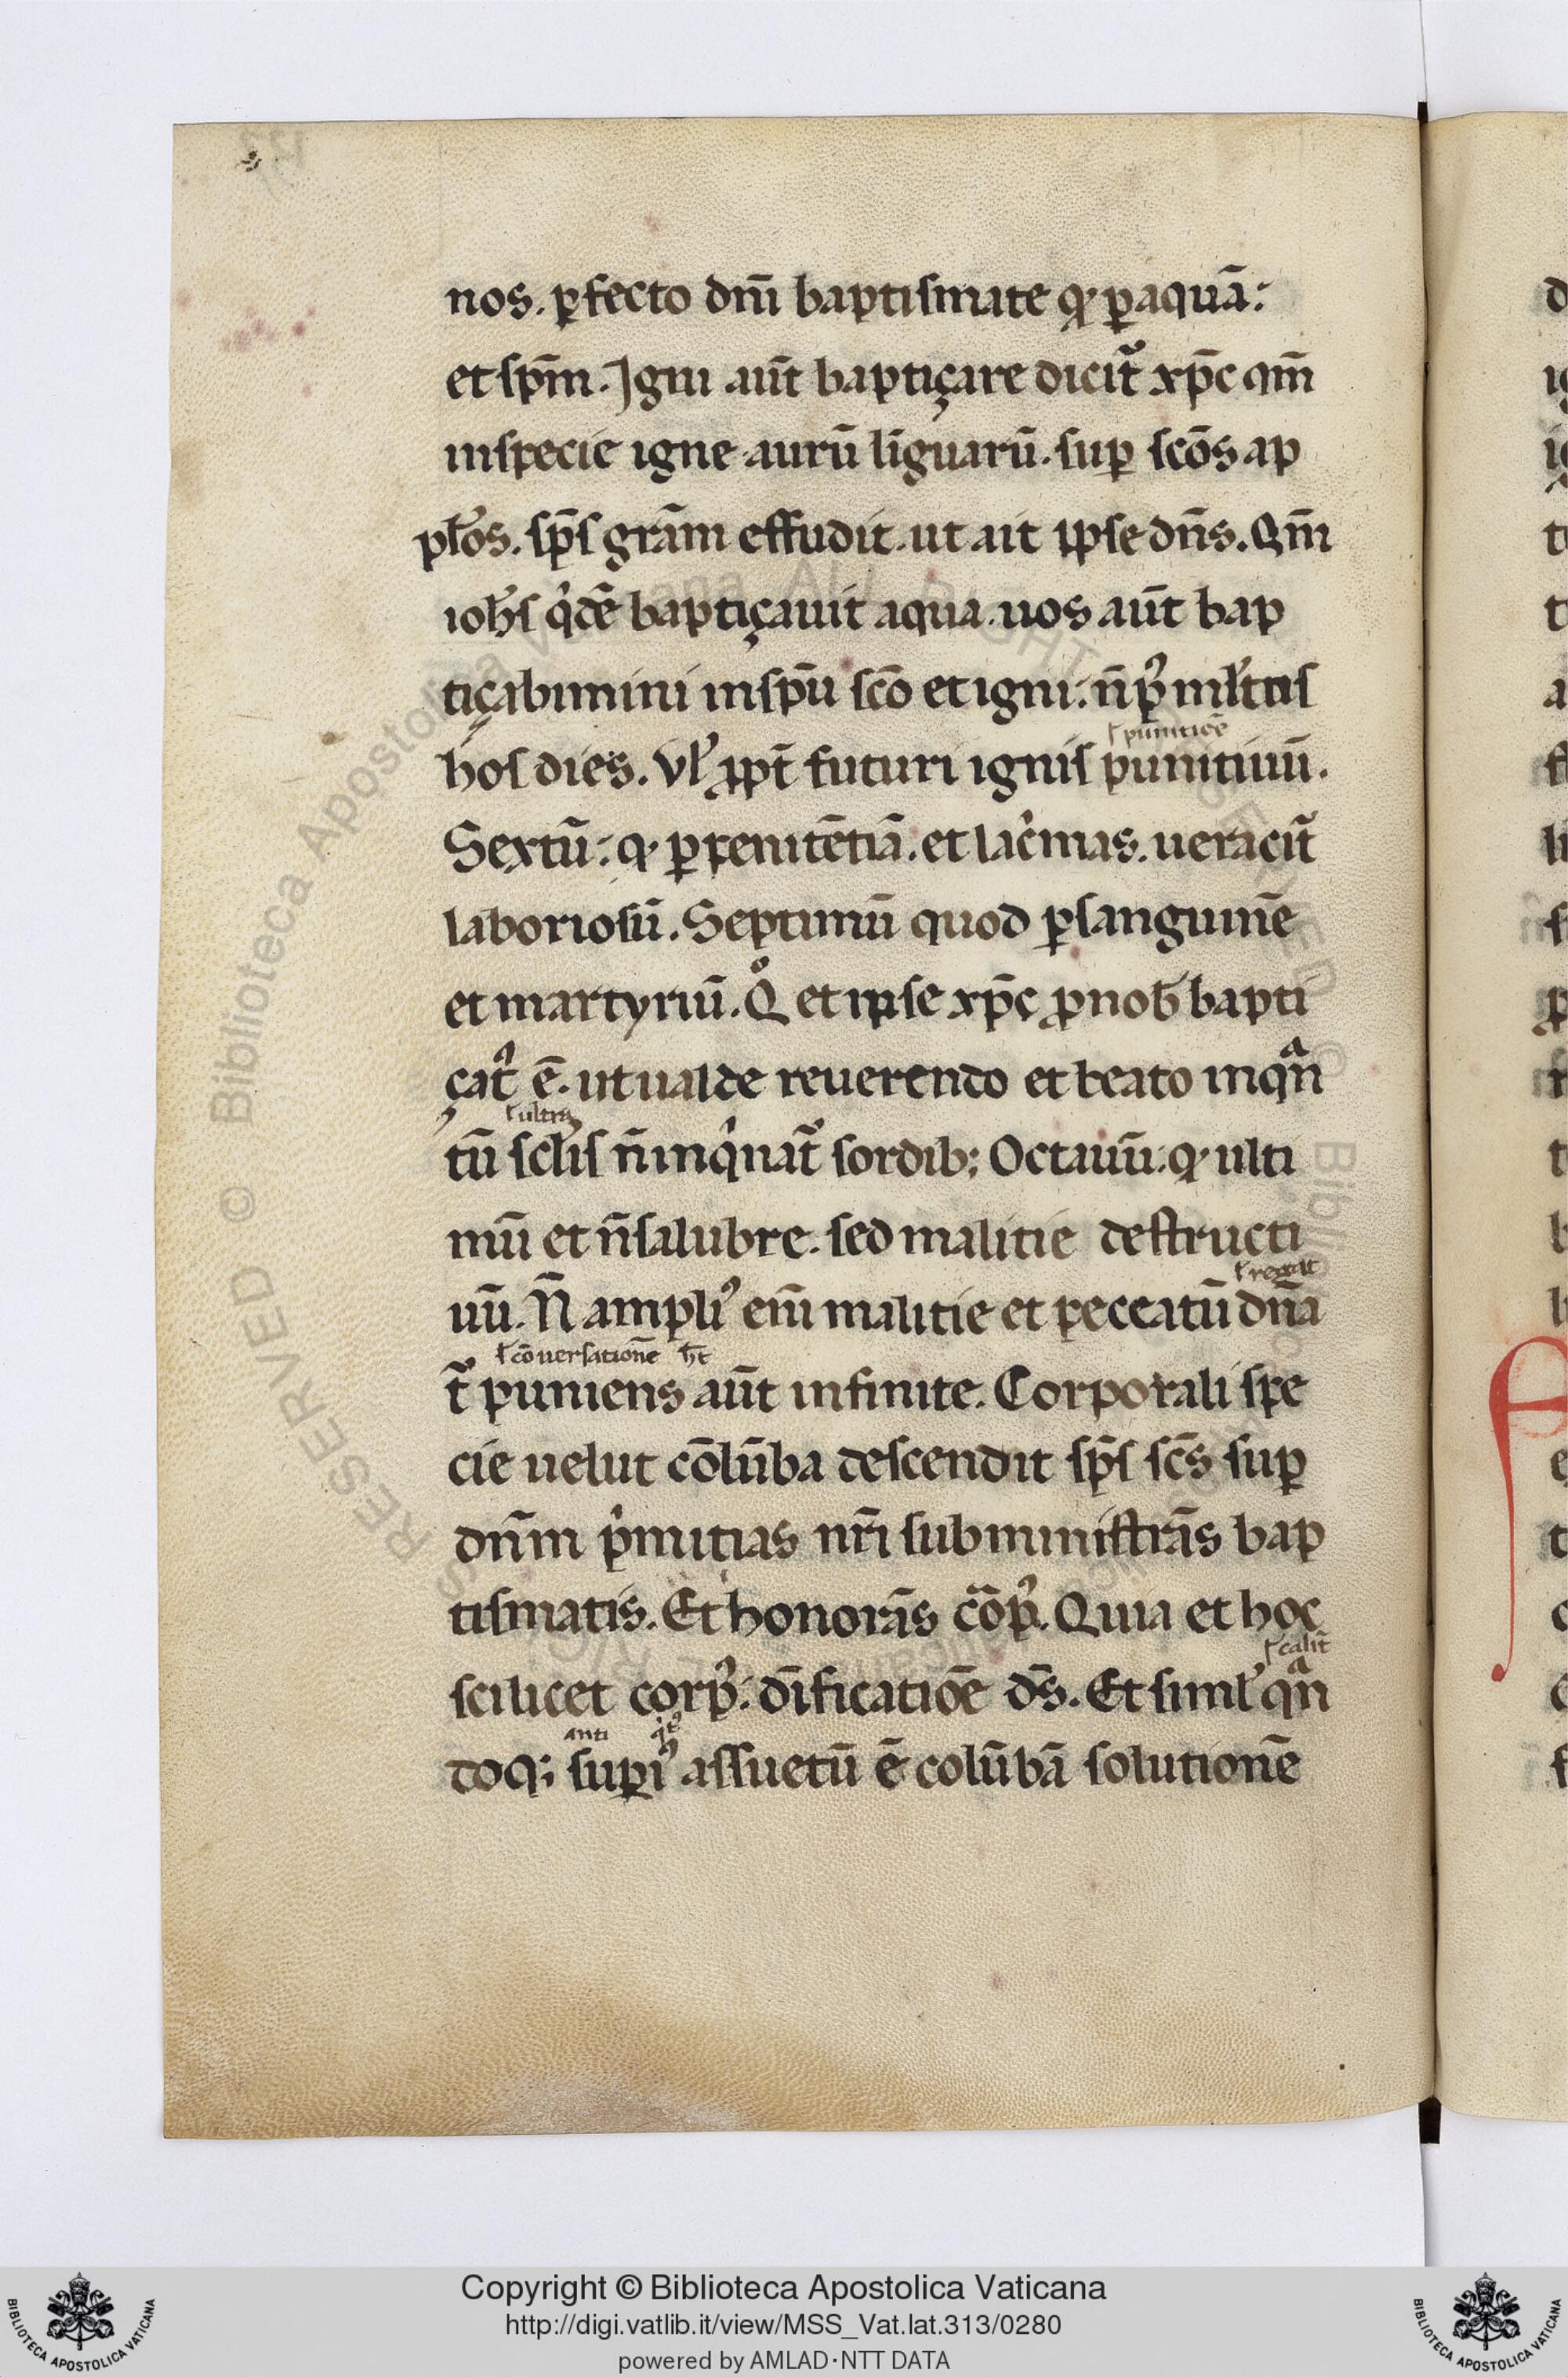 nos. ꝑfecto dn̄i baptismate qͥ ꝑ aquā:
et sp̄m. Igni aūt baptiçare dicit᷑ xp̄c qm̄
in specie igne aurū līguarū. suꝑ scōs ap
pl'os. sp̄s grām effudit. ut ait ipse dn̄s. Qm̄
ioh's qͥdē baptiçauit aqua. uos aūt bap
tiçabimini in sp̄u scō et igni: n̄ pꝰ ml'tis
ł punitiōe
hos dies. Vl' ꝓpt̄ futuri ignis punitiuū.
Sextū: q ꝑ penitētiā. et lacͥmas. ueracit᷑
laboriosū. Septimū quod ꝑ sanguinē
et martyriū. Qͦ et ipse xp̄c ꝓ nob̄ bapti
çatꝰ ē. ut ualde reuerendo et beato inqͣn
ł ultra
tū scl'is n̄ inqͥnat᷑ sordib; Octauū: q ulti
mū et n̄ salubre. sed malitie destructi
uū. N̄ ampliꝰ eni malitie et peccatū dn̄a
ł cōuersationē h̄t
t᷑ puniens aūt infinite. Corporali spe
cie uelut cōlūba descendit sp̄s sc̄s suꝑ
dn̄m pͥmitias nr̄i subministrās bap
tismatis. Et honorās cōpꝰ. Quia et hoc
scilicet corpꝰ: dīficatiōe d̄s. Et simil' qͣn
anti
doq; suꝑiꝰ assuetū ē colūbā solutionē
Copyright © Biblioteca Apostolica Vaticana
http://digi.vatlib.it/view/MSS_Vat.lat.313/0280
powered by AMLAD·NTT DATA
BIBLIOTECA APOSTOLICA VATICANA
BIBLIOTECA APOSTOLICA VATICANA